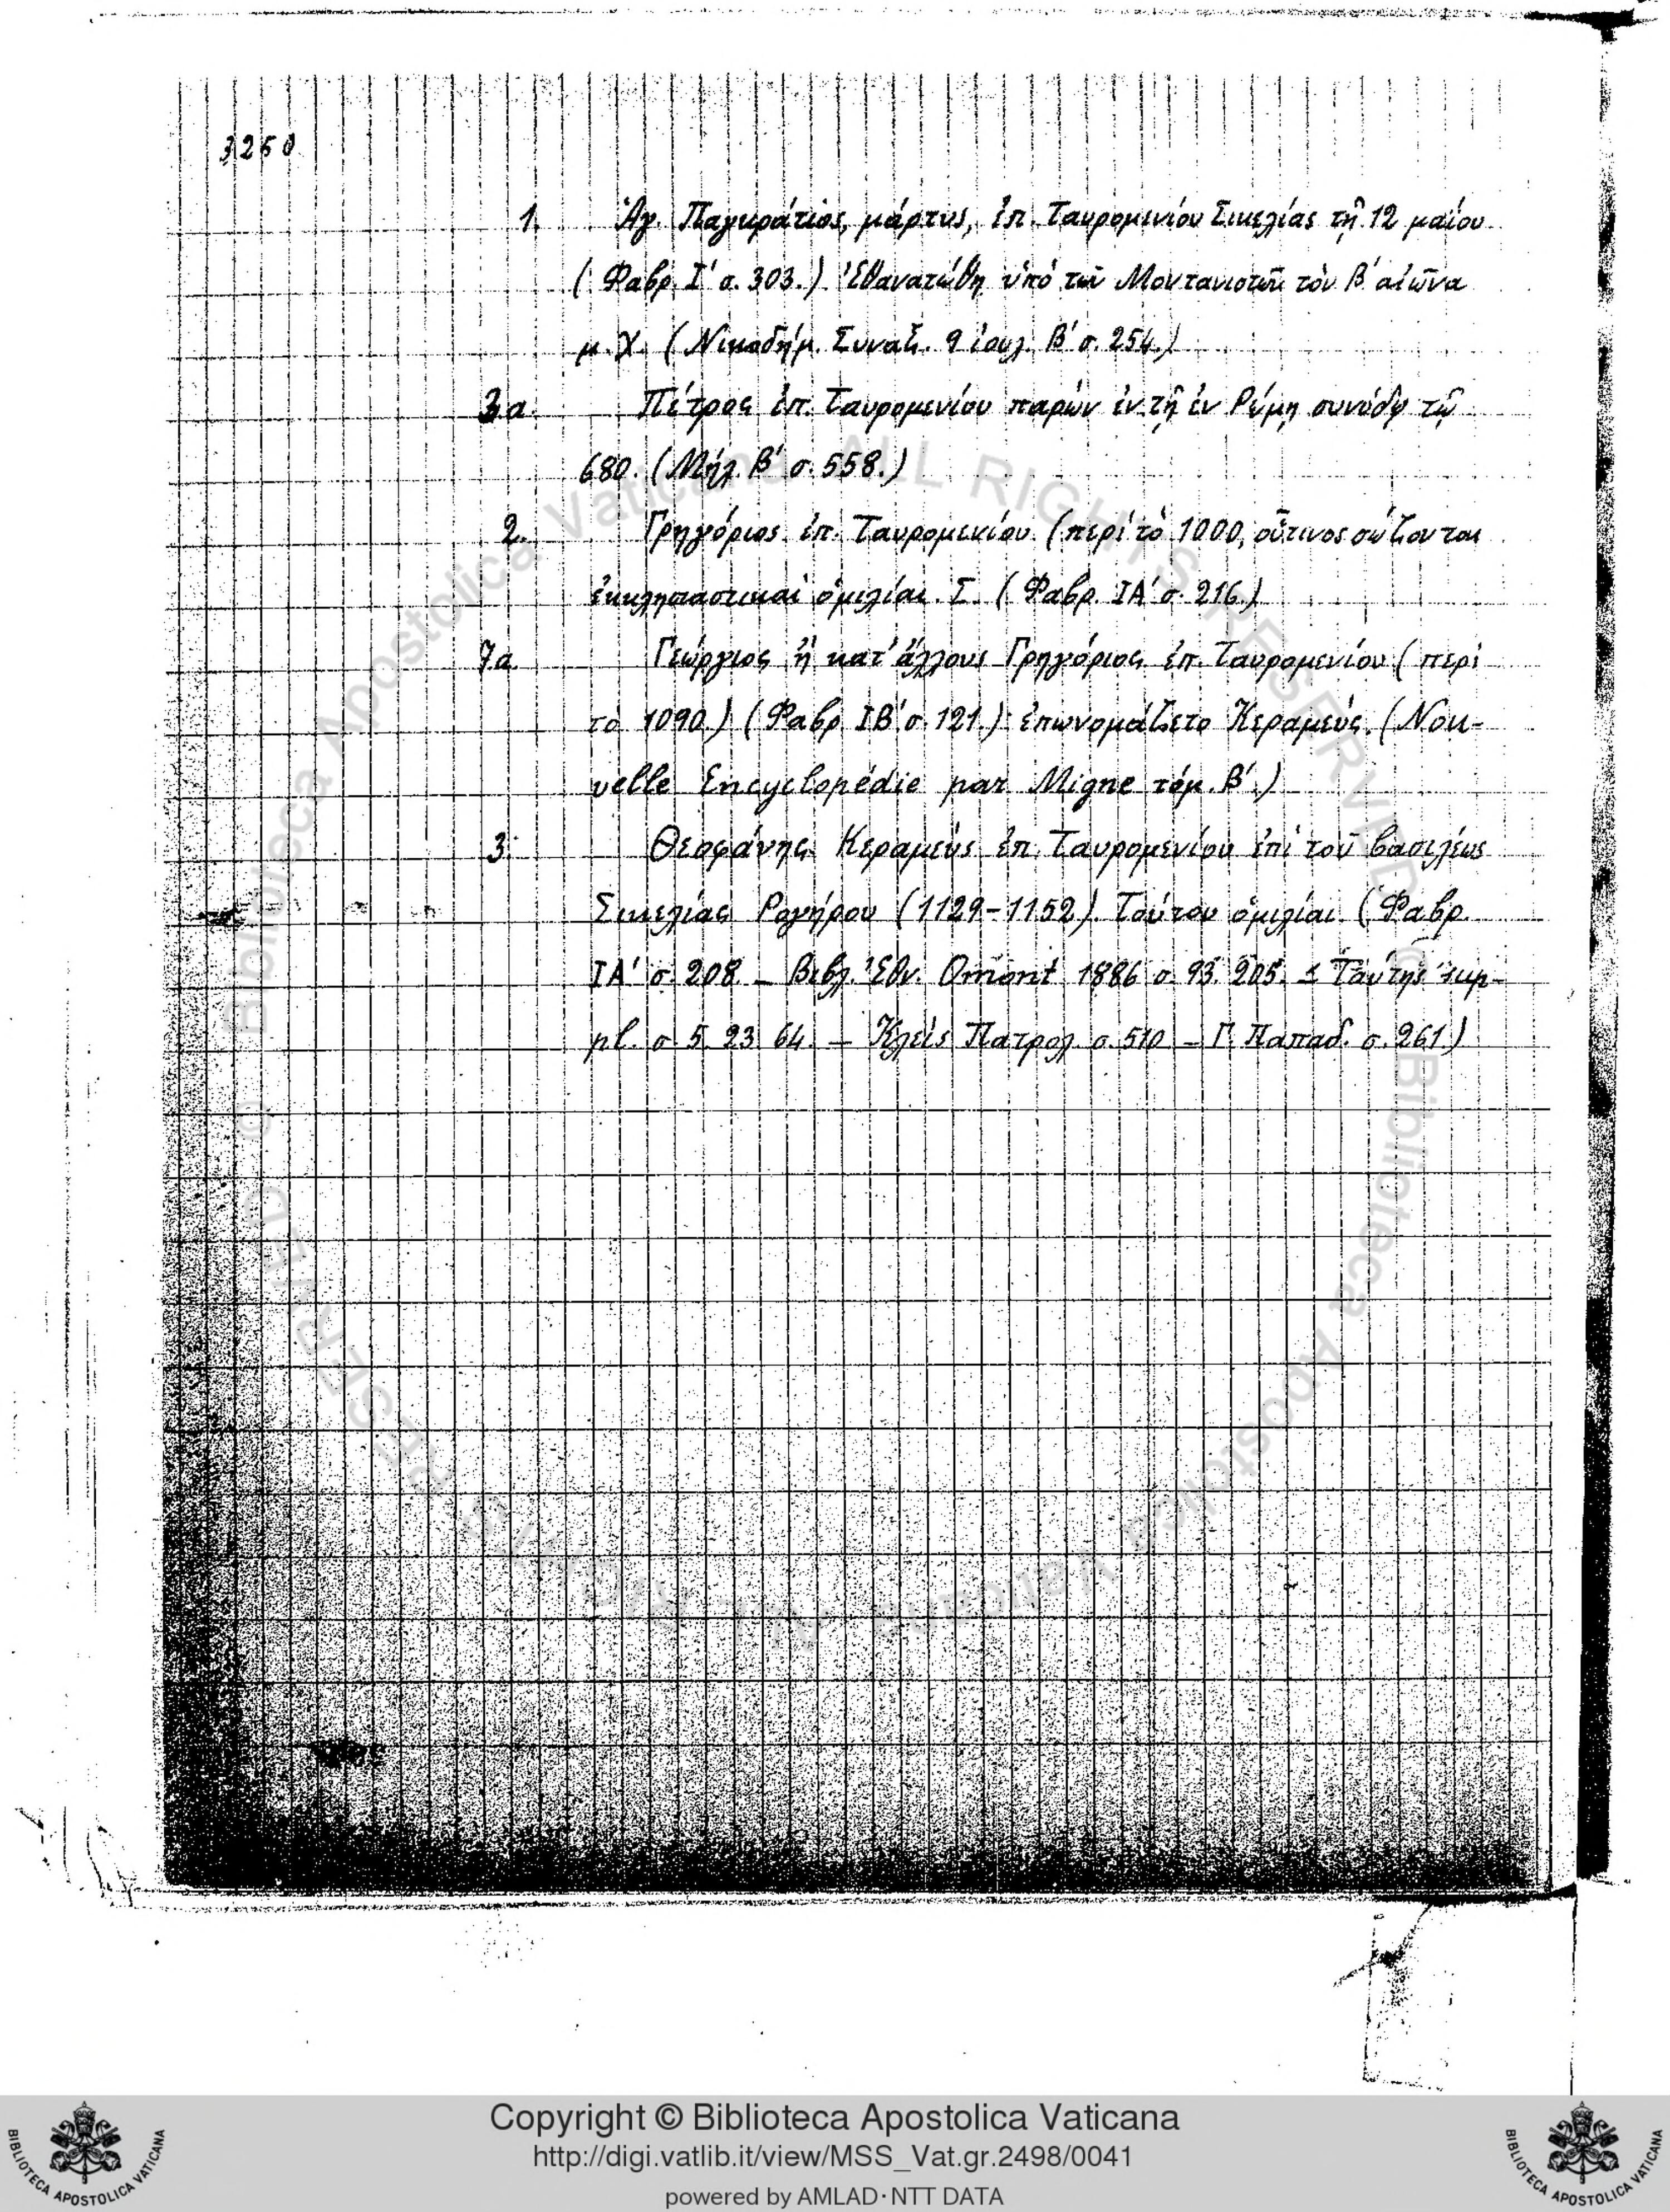 3250
1. Ἁγ. Παγκράτιος, μάρτυς, ἐπ. Ταυρομενίου Σικελίας τῇ 12 μαΐου
(Φαβρ. Ι΄ σ. 303.) Ἐθανατώθη ὑπὸ τῶν Μοντανιστῶν τὸν Β΄ αἰῶνα
μ. Χ. (Νικοδήμ. Συναξ. 9 ἰουλ. Β΄ σ. 254.)
3α. Πέτρος ἐπ. Ταυρομενίου παρὼν ἐν τῇ ἐν Ρώμῃ συνόδῳ τῷ
680. (Μήλ. Β΄ σ. 558.)
2. Γρηγόριος ἐπ. Ταυρομενίου (περὶ τὸ 1000, οὗτινος σώζονται
ἐκκλησιαστικαὶ ὁμιλίαι. Σ. (Φαβρ. ΙΑ΄ σ. 216.)
7α. Γεώργιος ἢ κατ' ἄλλους Γρηγόριος ἐπ. Ταυρομενίου (περὶ
τὸ 1090.) (Φαβρ ΙΒ΄ σ. 121.) ἐπωνομάζετο Κεραμεύς. (Nou-
velle Encyclopédie par Migne τόμ. Β΄.)
3. Θεοφάνης Κεραμεὺς ἐπ. Ταυρομενίου ἐπὶ τοῦ βασιλέως
Σικελίας Ρογήρου (1129-1152). Τούτου ὁμιλίαι. (Φαβρ.
ΙΑ΄ σ. 208. — Βιβλ. Ἐθν. Omont 1886 σ. 93. 205. — Ταύτης sup-
pl. σ. 5. 23. 64. — Κλεὶς Πατρολ. σ. 510 — Γ. Παπαδ. σ. 261.)
© Biblioteca Apostolica Vaticana ALL RIGHTS RESERVED
© Biblioteca Apostolica Vaticana ALL RIGHTS RESERVED
Copyright © Biblioteca Apostolica Vaticana
http://digi.vatlib.it/view/MSS_Vat.gr.2498/0041
powered by AMLAD·NTT DATA
BIBLIOTECA APOSTOLICA VATICANA
BIBLIOTECA APOSTOLICA VATICANA